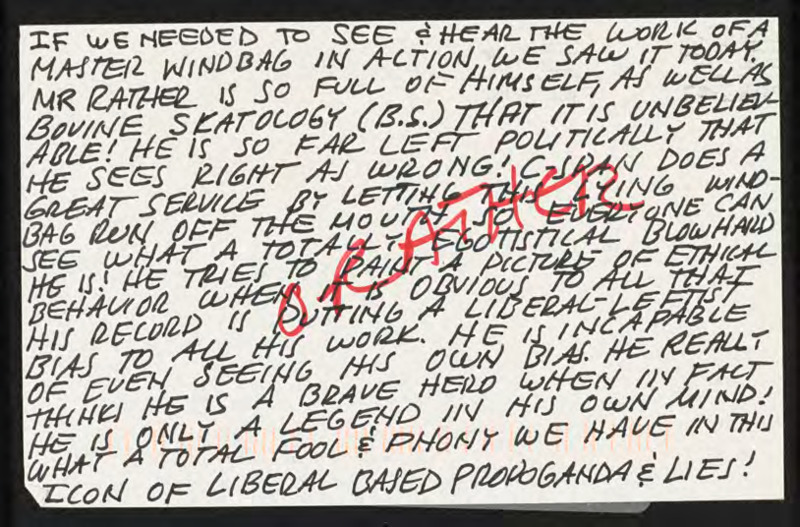 IF WE NEEDED TO SEE & HEAR THE WORK OF A
MASTER WINDBAG IN ACTION, WE SAW IT TODAY.
MR RATHER IS SO FULL OF HIMSELF, AS WELL AS
BOVINE SKATOLOGY (B.S.) THAT IT IS UNBELIEV-
ABLE! HE IS SO FAR LEFT POLITICALLY THAT
HE SEES RIGHT AS WRONG! C-SPAN DOES A
GREAT SERVICE BY LETTING THIS LYING WIND-
BAG RUN OFF THE MOUTH SO EVERYONE CAN
SEE WHAT A TOTALLY EGOTISTICAL BLOWHARD
HE IS! HE TRIES TO PAINT A PICTURE OF ETHICAL
BEHAVIOR WHEN IT IS OBVIOUS TO ALL THAT
HIS RECORD IS PUTTING A LIBERAL-LEFTIST
BIAS TO ALL HIS WORK. HE IS INCAPABLE
OF EVEN SEEING HIS OWN BIAS. HE REALLY
THINKS HE IS A BRAVE HERO WHEN IN FACT
HE IS ONLY A LEGEND IN HIS OWN MIND!
WHAT A TOTAL FOOL & PHONY WE HAVE IN THIS
ICON OF LIBERAL BASED PROPOGANDA & LIES!
RATHER